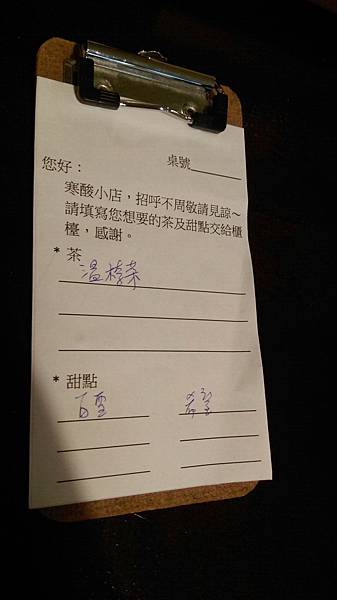 您好：
桌號
寒酸小店，招呼不周敬請見諒～
請填寫您想要的茶及甜點交給櫃
檯，感謝。
* 茶
溫桔茶
* 甜點
百雪
希望